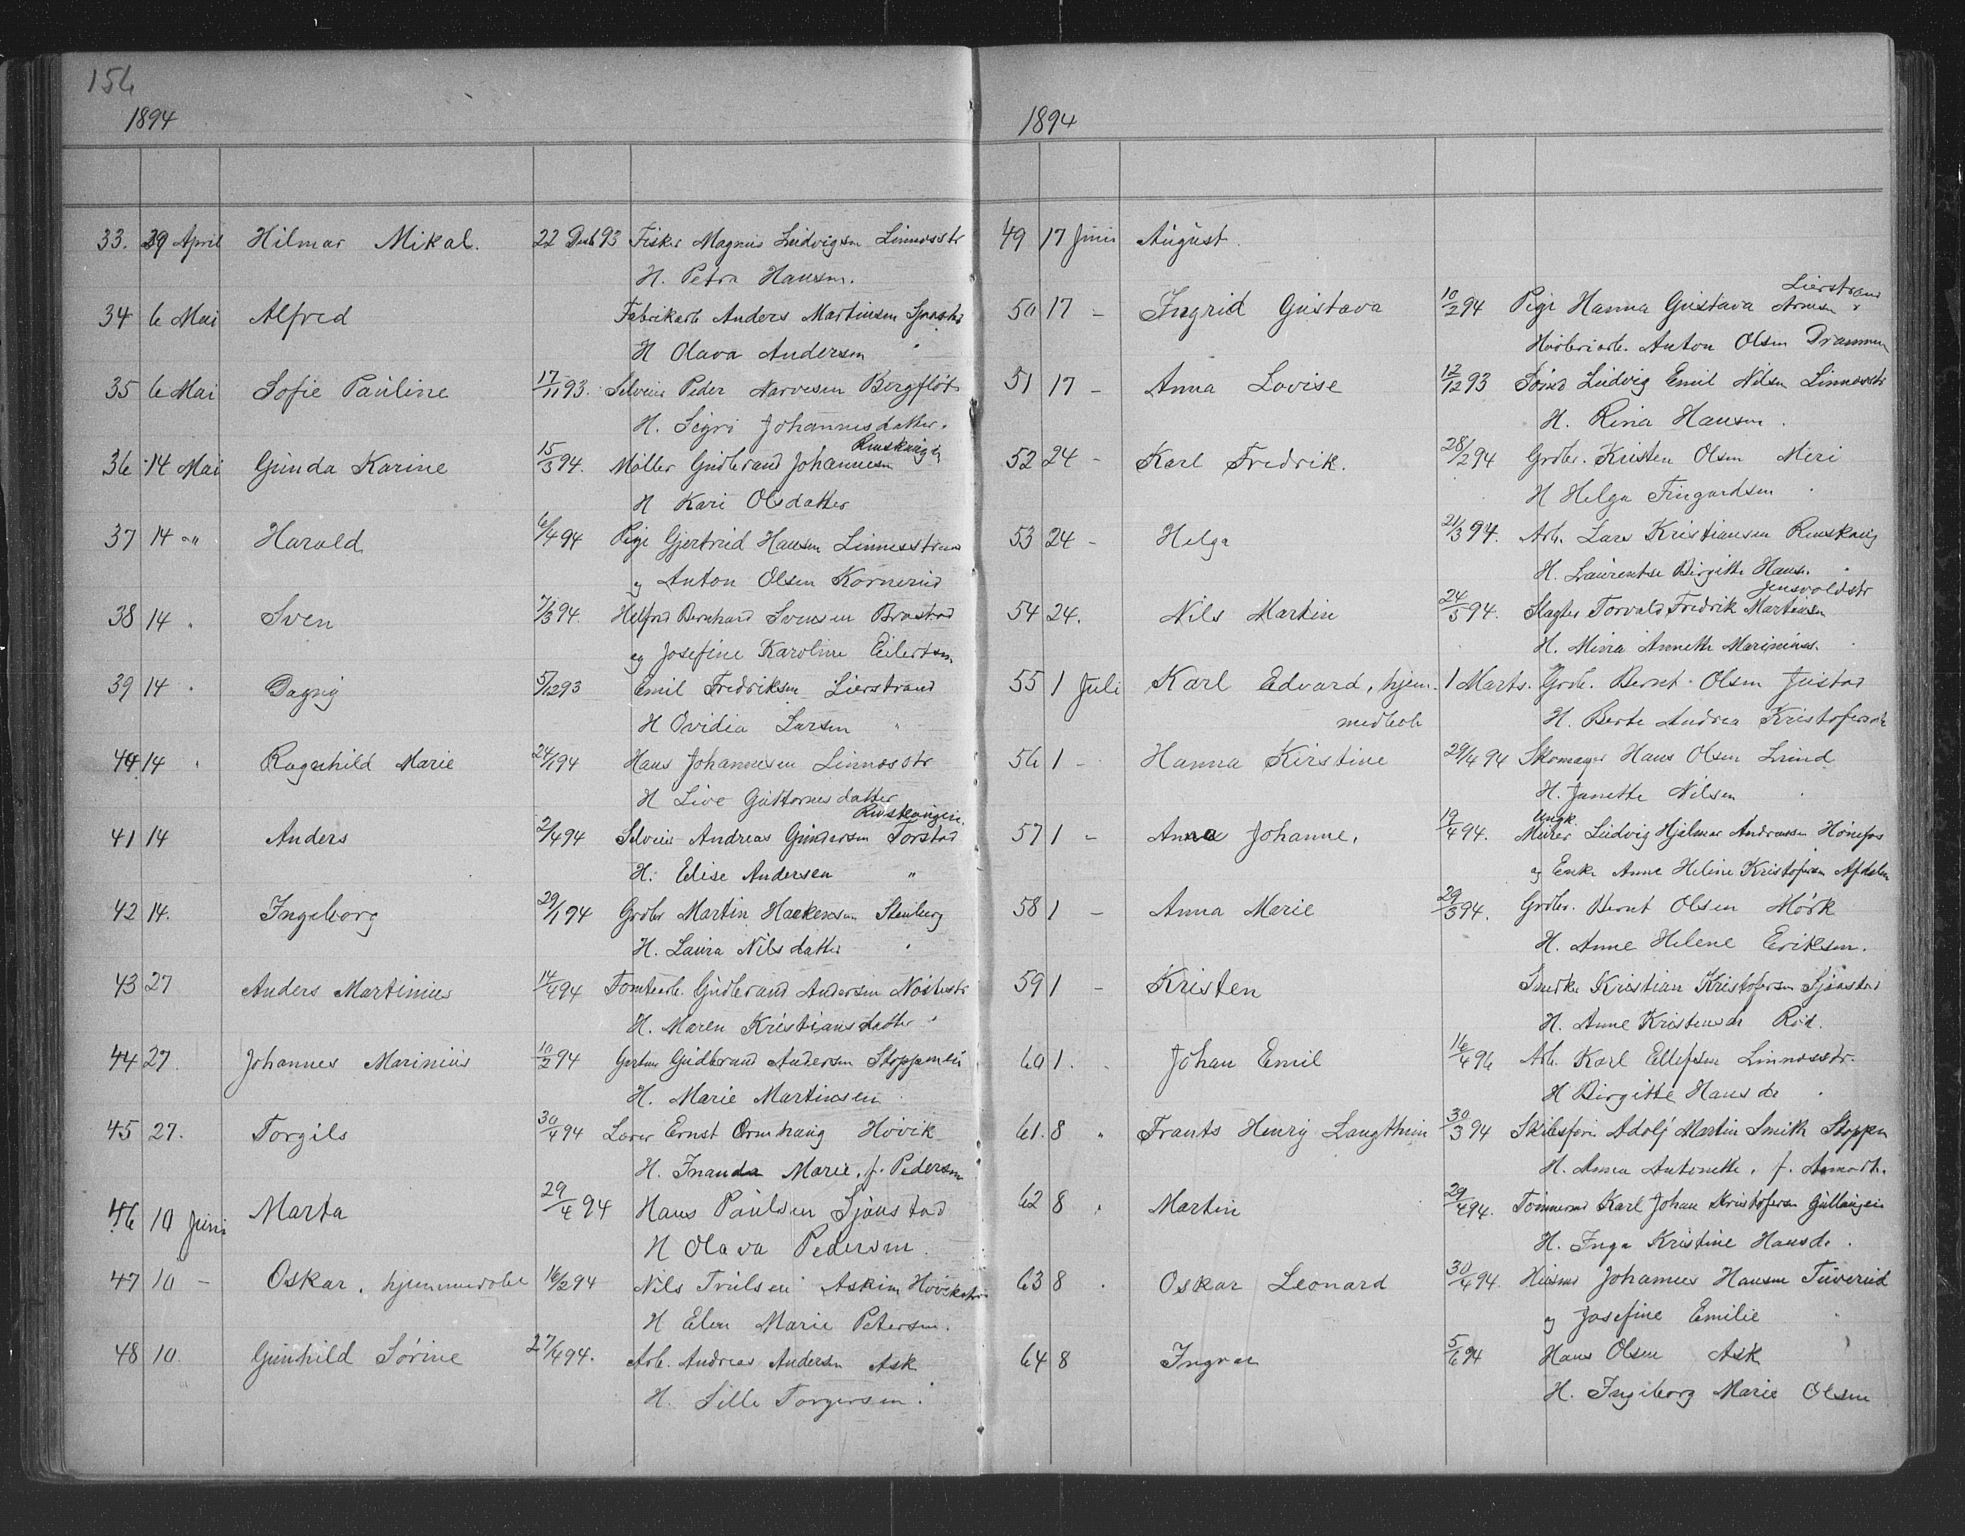 156
1894
33. 29 April Hilmar Mikal. 22 Deb 93 Fisker Magnus Ludvigsen Linnesstr
H. Petra Hansen.
34 6 Mai Alfred Fabrikarb Anders Martinsen Sjaastad
H Olava Andersen
35 6 Mai Sofie Pauline 17/11 93. Selveier Peder Narvesen Bergflöt
H. Sigri Johannesdatter.
Renskaug
36 14 Mai Gunda Karine 15/3 94. Møller Gudbrand Johannesen
H Kari Olsdatter
37 14 " Harald 6/4 94 Pige Gjertrud Hansen Linnesstrand
og Anton Olsen Kornerud
38 14 " Sven 7/3 94. Helfred Bernhard Svensen Brastad
og Josefine Karoline Eilertsen.
39 14 " Dagny 5/12 93 Emil Fredriksen Lierstrand
H Ovidia Larsen "
40 14 " Ragnhild Marie 24/1 94 Hans Johannesen Linnesstr
H Live Guttormsdatter
41 14 Anders 2/4 94 Selveier Andreas Gundersen Torstad
H. Elise Andersen "
42 14. Ingeborg 29/1 94 Grdbr Martin Haakensen Stenberg
H. Laura Nilsdatter "
43 27 Anders Martinius 14/4 94 Tomtearb. Gudbrand Andersen Nøstestr
H. Maren Kristiansdatter "
44 27. Johannes Marinius 10/2 94 Gudbrand Andersen Stoppeneie
H. Marie Martinsen
45 27. Torgils 30/4 94 Lærer Ernst Ormhaug Hovik
H. Inanda Marie, f. Pedersen
46 10 Juni Marta 29/4 94 Hans Paulsen Sjåustad
H Olava Pedersen.
47 10 – Oskar, hjemmedøbt 16/2 94 Nils Trulsen Askim Hovikstr
H Elen Marie Petersen.
48 10. Gunhild Sørine 27/4 94. Arb. Andreas Andersen Ask
H. Lille Torgersen "
1894
49 17 Juni August.
Lierstrand
50 17 – Ingrid Gustava 10/2 94 Pige Hanna Gustava Arnesen
Anton Olsen Drammen
51 17 – Anna Lovise 12/12 93 Ludvig Emil Nilsen Linnesstr
H. Rina Hansen.
52 24 – Karl Fredrik. 28/2 94 Grdbr. Kristen Olsen Meri
H Helga Fingardsen "
53 24 – Helga 21/3 94. Arb. Lars Kristiansen Renskaug
H. Laurentse Birgitte Hans.
Jensvoldstr
54 24. Nils Martin 24/3 94. Slagter Torvald Fredrik Martinsen
H. Mina Annette Marinius.
55 1 Juli Karl Edvard, hjem- 1 Marts. Grdb. Bernt Olsen Justad
medøbt H. Berte Andrea Kristofersdt
56 1 – Hanna Kirstine 29/4 94 Skomager Hans Olsen Lund
H. Janette Nilsen "
Ungk.
57 1 – Anna Johanne. 19/4 94. Murer Ludvig Hjalmar Andreassen Hønefos
og Enke Anne Heline Kristofersen Afdalen
58 1 – Anna Marie 29/3 94. Grdbr. Bernt Olsen Mörk
H. Anne Helene Eriksen.
59 1 – Kristen Snedker Kristian Kristofersen Sjåustad
H. Anne Kristensdr Rød.
60 1. Johan Emil 16/4 96 Arb. Karl Ellefsen Linnesstr.
H Birgitte Hansdr "
61. 8 " Frants Henry Langthim 30/3 94 Skibsfører Adolf Martin Smith Stoppen
H. Anna Antonette, f. Amodt.
62 8 " Martin 29/4 94. Tømmermd Karl Johan Kristofersen Gullaugeie
H. Inga Kristine Hansdr.
63 8 " Oskar Leonard 30/4 94. Husmd Johannes Hansen Tuverud
og Josefine Emilie "
64 8 Ingvar 5/6 94 Hans Olsen Ask
H. Ingeborg Marie Olsen